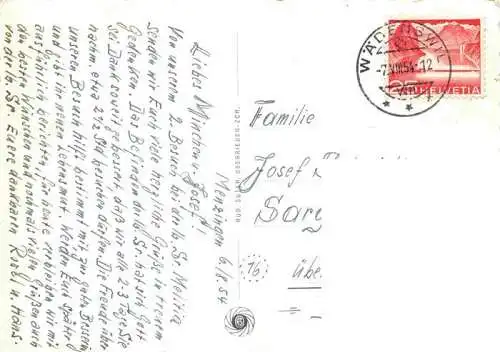 Menzingen 6/8.54
Liebes Minchen u. Josef!
Von unserem 2. Besuch bei der lb. Sr. Melitta
senden wir Euch viele herzliche Grüße in treuem
Gedenken. Das Befinden der lb. Sr. hat sich Gott
sei Dank soweit gebessert, daß wir alle 2-3 Tage Sie
nachm. etwa 2 ½ Std besuchen dürfen. Die Freude über
unseren Besuch hilft bestimmt mit zur guten Besserung
und gibt ihr neuen Lebensmut. Werden Euch später
ausführlich berichten, für heute verbleiben wir mit
den besten Wünschen und nochmals vielen Grüßen auch
von der lb. Sr. Euere dankbaren Rosel u. Hans.
RUD. SUTER, OBERRIEDEN-ZCH.
WÄDENSWIL
-7.VIII.54-12
HELVETIA
Familie
Josef
Sarg
übe
16